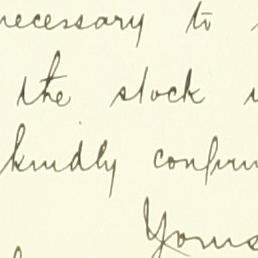 necessary to
the stock
kindly confirm
Yours